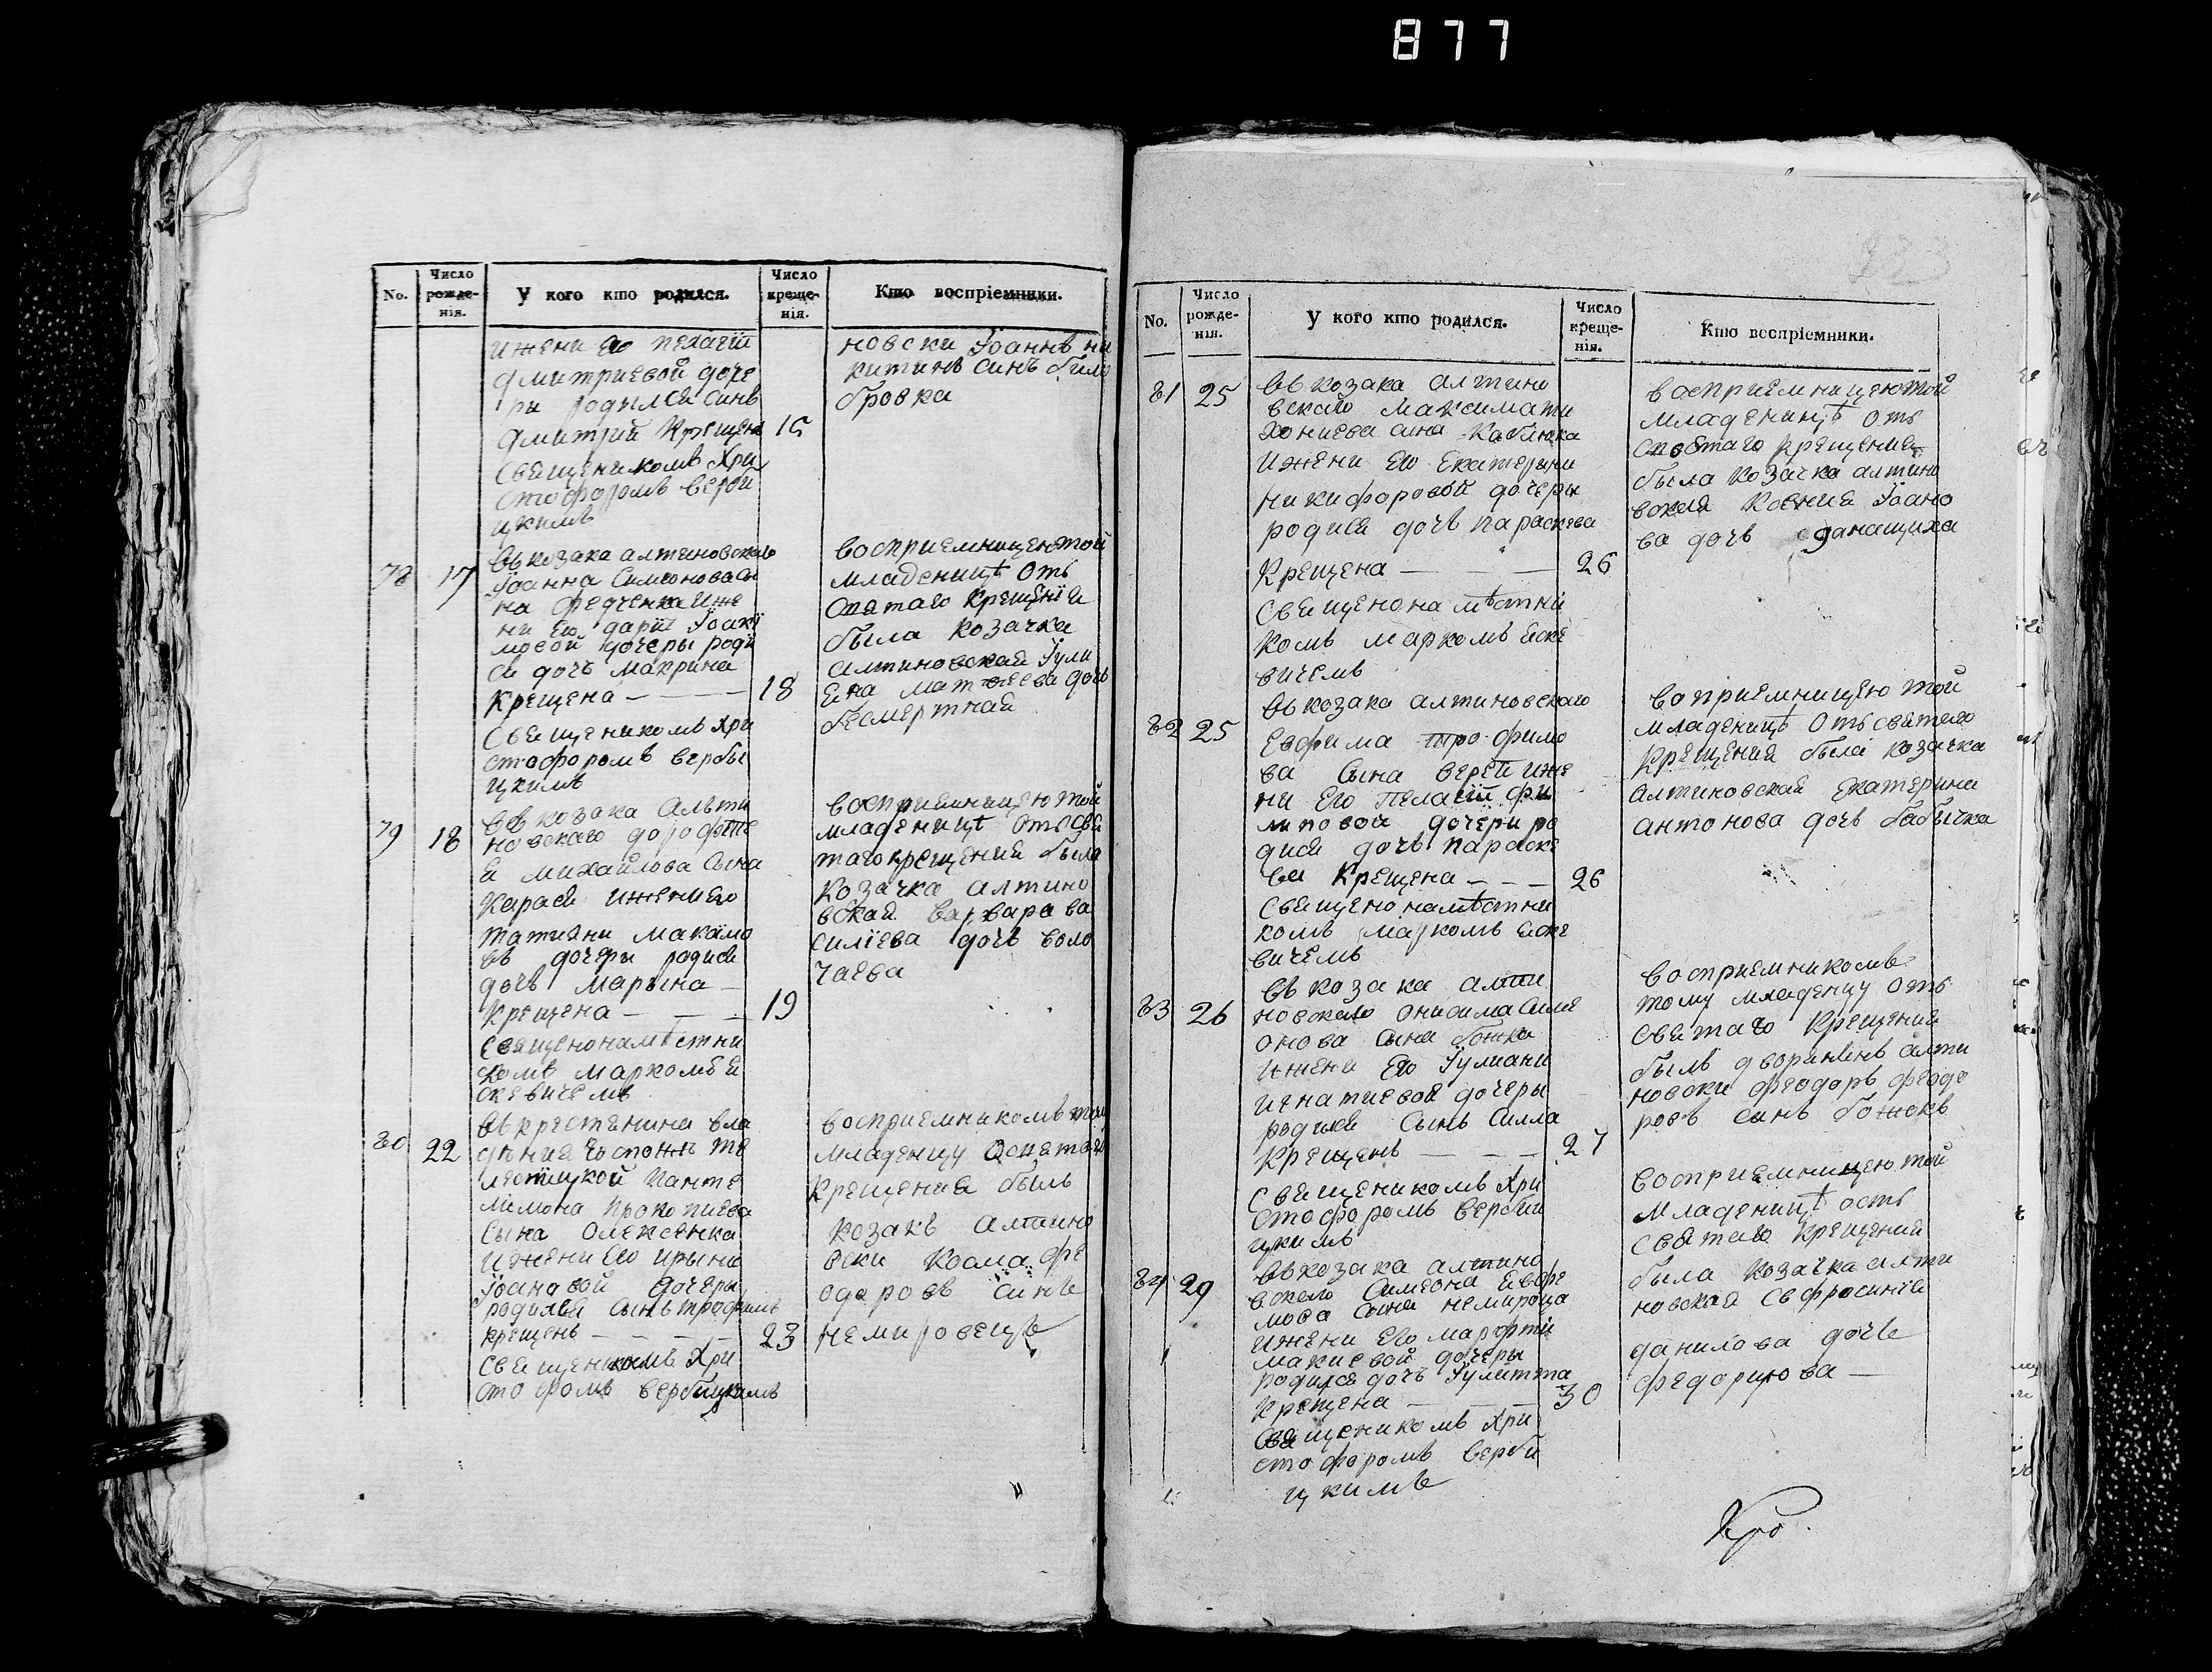 877
No.
Число рожде-нія.
У кого кто родился.
Число креще-нія.
Кто воспріемники.
ижени его пелагїи
дмитриевой доче
ри родылся синъ
дмитрий Крещенъ 15
Свещеникомъ Хри
стофоромъ верби
цкимъ
новски Їоаннъ ни
китинъ синъ било
бровка
78 17
въ козака алтиновского
Їоанна Симеонова сы
на федченка иже
ни его дарїи Їоакї
мовой дочеры роди
ся дочъ макрина
крещена — — — 18
Свещеникомъ Хри
стофоромъ вербы
цкимъ
восприемницею той
младеницѣ отъ
святаго крещениѣ
была козачка
алтиновская Їули
ена матвеева дочъ
бесмертная
79 18
въ козака алъти
новскаго дорофее
я михайлова сына
карася ижени его
татияни макамо
въ дочери родися
дочъ марына —
крещена — — — 19
Свещенонамѣстни
комъ маркомъ я
скевичемъ
восприемницею той
младеницѣ отъ свя
таго крещения была
козачка алтино
вская варвара ва
силїева дочъ воло
чаева
80 22
въ крестенина вла
дѣния госпожѣ те
лестицкой панте
лимона прокопиева
сына олексенка
ижени его ирыни
Їоановой дочеры
родился сынъ трофимъ
крещенъ — — — 23
свещеникомъ Хри
стофромъ вербицкимъ
восприемникомъ том
младенцу
крещения былъ
козакъ алтино
вски косма фе
одоровъ синъ
немировецъ
No.
Число рожде-нія.
У кого кто родился.
Число креще-нія.
Кто воспріемники.
81 25
въ козака алтино
вскаго максима ти
хониева сина каблюка
ижени его екатерини
никифоровой дочеры
родися дочъ параскева
Крещена — — — 26
Свещенонамѣстни
комъ маркомъ яске
вичемъ
восприемницею той
младеницѣ отъ
святаго крещения
была козачка алтино
вская ксения Їоано
ва дочъ
82 25
въ козака алтиновскаго
Евфима трофимо
ва сына верей иже
ни его пелагїи фи
липовой дочери ро
дися дочъ параске
ва крещена — — — 26
свещенонамѣстни
комъ маркомъ яске
вичемъ
воприемницею той
младеницѣ отъ святаго
крещения была козачка
алтиновская екатерина
антонова дочъ бабичка
83 26
въ козака алти
новскаго онисима симе
онова сына божка
ижени его Їулиани
игнатиевой дочеры
родился сынъ силла
крещенъ — — — 27
свещеникомъ Хри
стофоромъ верби
цкимъ
восприемникомъ
тому младенцу отъ
святаго крещения
былъ дворянинъ алти
новски феодоръ феодо
ровъ синъ божокъ
84 29
въ козака алтино
вскаго симеона евфе
мова сына немировца
ижени его марфти
макиевой дочеры
родился дочъ Їулитта
крещена — — — 30
свещеникомъ Хри
стофоромъ верби
цкимъ
восприемницею той
младеницѣ отъ
святаго крещения
была козачка алти
новская евфросиния
данилова дочъ
федорцова —